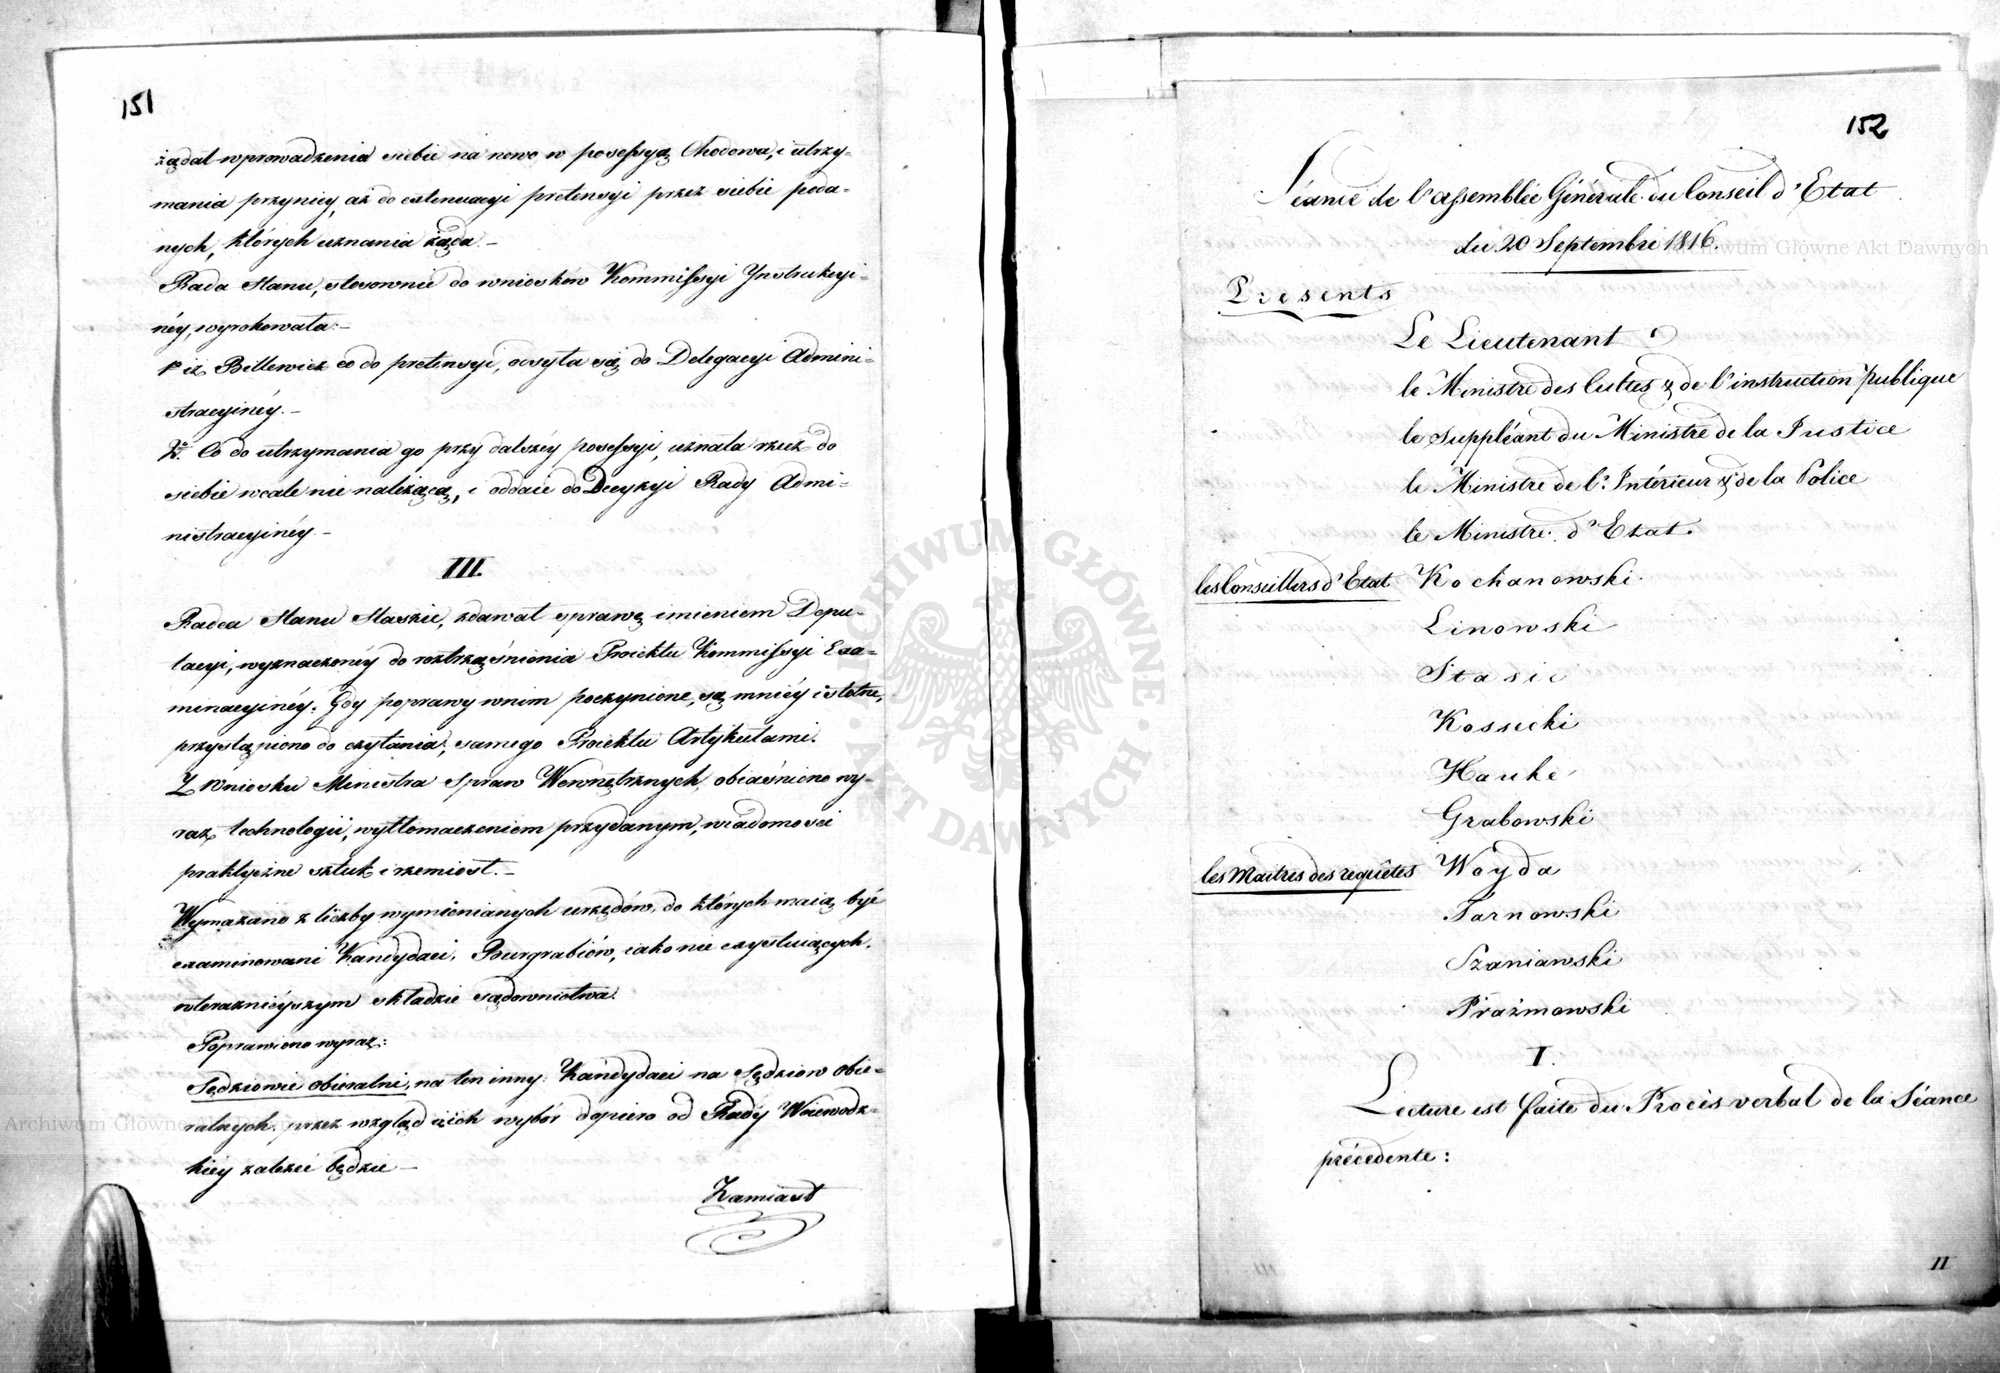 151
żądał wprowadzenia siebie na nowo w possessyą Chodowa, i utrzy-
mania przyniey, aż do extenuacyi pretensyi przez siebie poda-
nych, których uznania żąda.-
Rada Stanu, stosownie do wniosków Kommissyi Ynstrukcyi-
néy, wyrokowała:-
1º iż Billewicz co do pretensyi, odsyła się do Delegacyi Admini-
stracyinéy.-
2º. Co do utrzymania go przy dalszéy possessyi, uznała rzecz do
siebie wcale nie należącą, i oddaie do Decyzyi Rady Admi-
nistracyinéy.-
III.
Radca Stanu Staszic, zdawał sprawę imieniem Depu-
tacyi, wyznaczonéy do roztrząśnienia Proiektu Kommissyi Exa-
minacyinéy. Gdy poprawy wnim poczynione, są mniéy istotne,
przystąpiono do czytania, samego Proiektu Artykułami.
Z Wniosku Ministra Spraw Wewnętrznych, obiaśniono wy-
raz, technologii, wytłomaczeniem przydanym, wiadomości
praktyczne sztuk i rzemiosł.-
Wymazano z liczby wymienianych urzędów, do których maią być
examinowani Kandydaci, Bourgrabiów, iako nie exystuiących,
wteraznieyszym składzie sądownictwa.
Poprawiono wyraz:
Sędziowie obieralni, na ten inny: Kandydaci na Sędziow obie-
ralnych, przez wzgląd iż ich wybór dopiero od Rady Woiewodz-
kiéy zależeć będzie-
Zamiast
152
Séance de l'assemblée Générale du Conseil d'Etat
du 20 Septembre 1816.
Presents
Le Lieutenant
le Ministre des Cultes & de l'instruction publique
le Suppléant du Ministre de la Justice
le Ministre de l'Intérieur & de la Police
le Ministre d'Etat.
les Conseillers d'Etat Kochanowski.
Linowski
Stasic
Kossecki
Hauke
Grabowski
les Maitres des requêtes Woyda
Tarnowski
Szaniawski
Prażmowski
I.
Lecture est faite du Procès verbal de la Séance
précédente:
II
Archiwum Główne Akt Dawnych
ARCHIWUM GŁÓWNE · AKT DAWNYCH ·